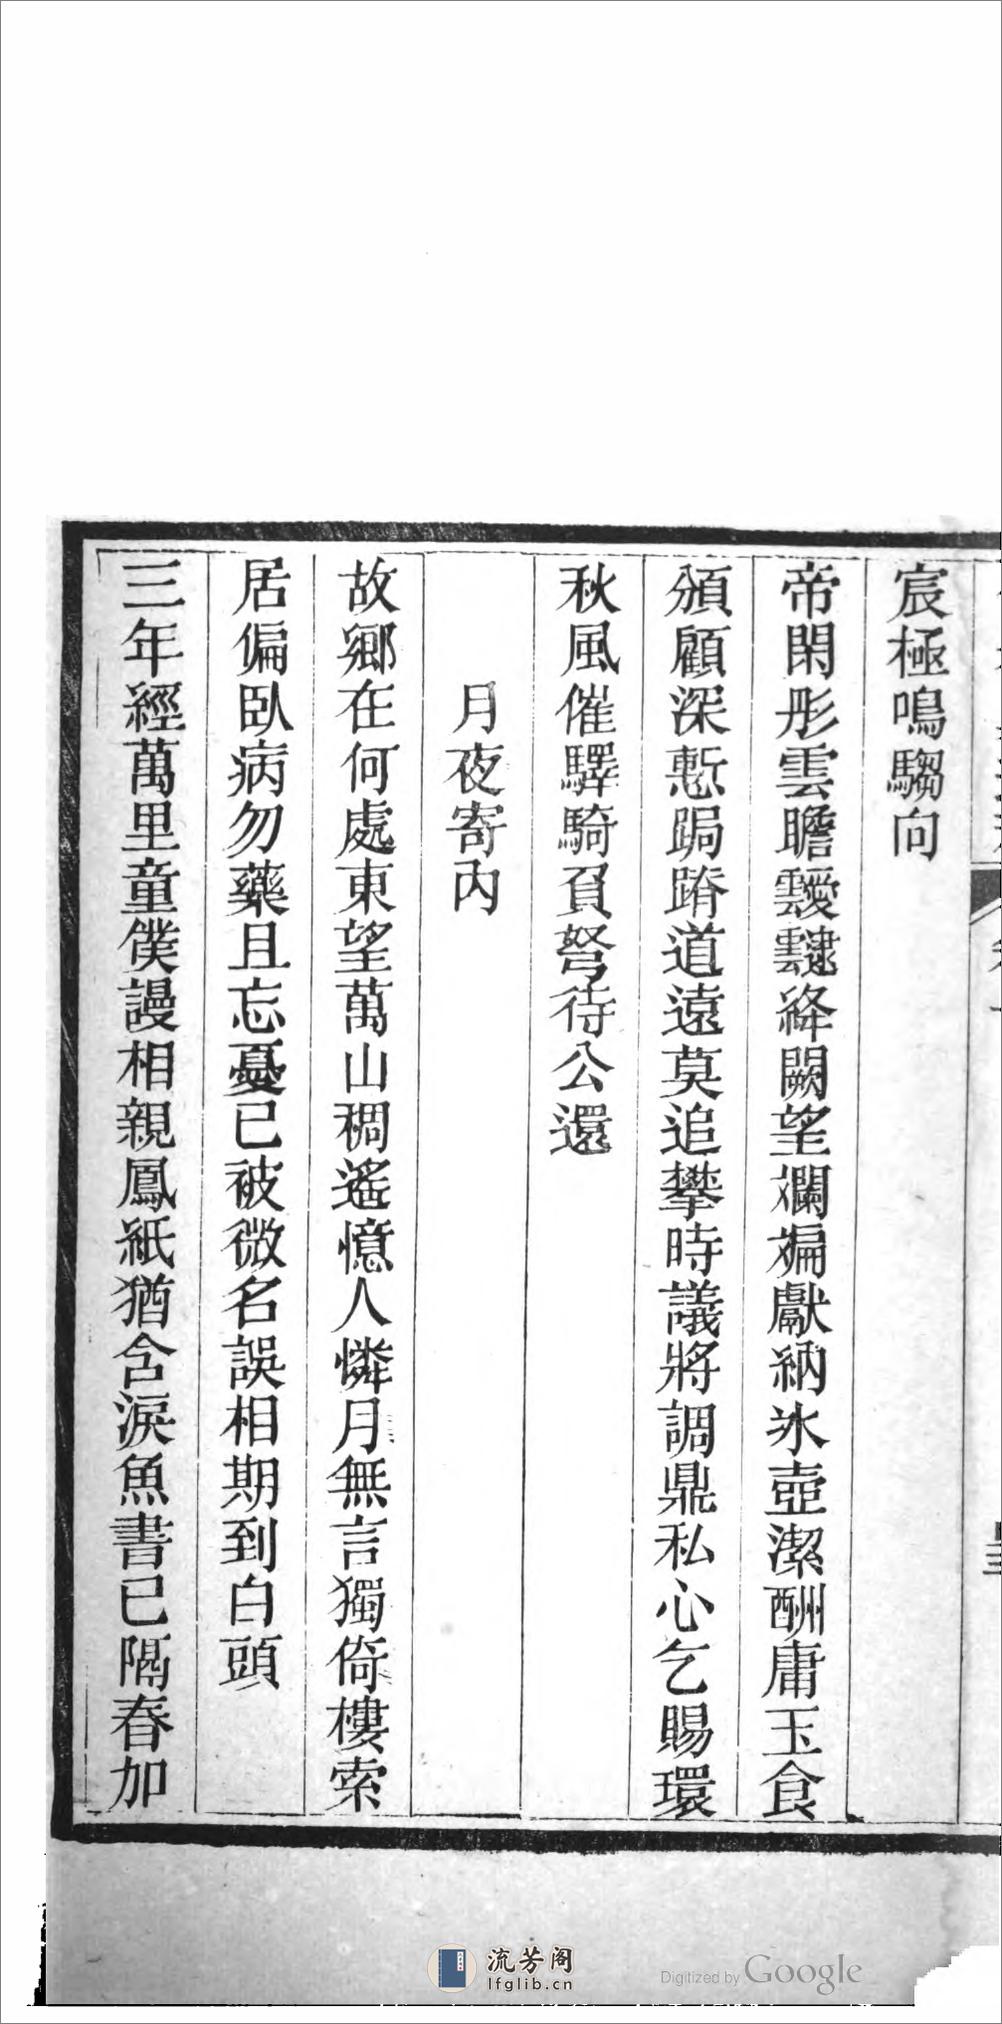 宸極鳴騶向
帝閑彤雲瞻靉靆絳闕望斕斒獻納氷壺潔酬庸玉食
頒顧深慙跼蹐道遠莫追攀時議將調鼎私心乞賜環
秋風催驛騎負弩待公還
月夜寄內
故鄉在何處東望萬山稠遙憶人憐月無言獨倚樓索
居偏臥病勿藥且忘憂已被微名誤相期到白頭
三年經萬里童僕謾相親鳳紙猶含淚魚書已隔春加
流芳阁
lfglib.cn
Digitized by Google